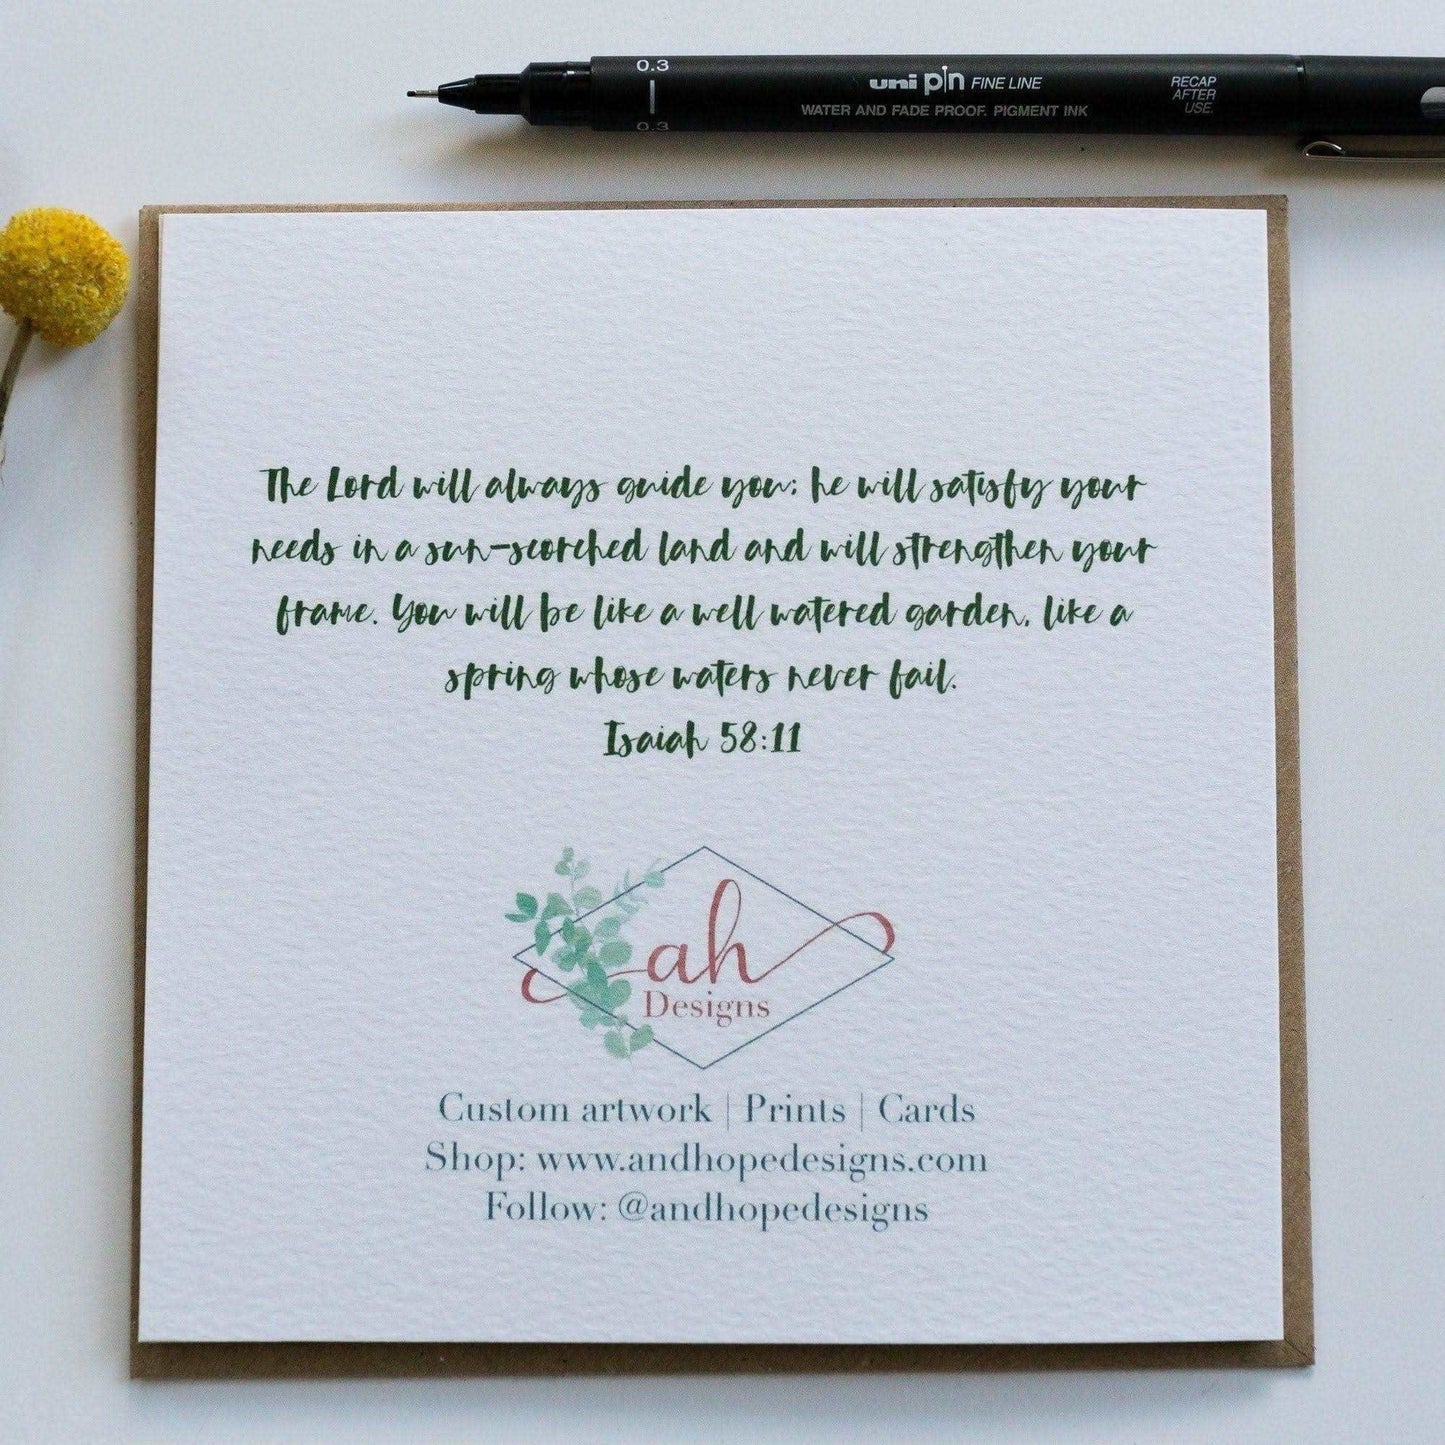 0.3
0.3
uni pin FINE LINE
WATER AND FADE PROOF. PIGMENT INK
RECAP
AFTER
USE.
The Lord will always guide you; he will satisfy your
needs in a sun-scorched land and will strengthen your
frame. You will be like a well watered garden, like a
spring whose waters never fail.
Isaiah 58:11
ah
Designs
Custom artwork | Prints | Cards
Shop: www.andhopedesigns.com
Follow: @andhopedesigns